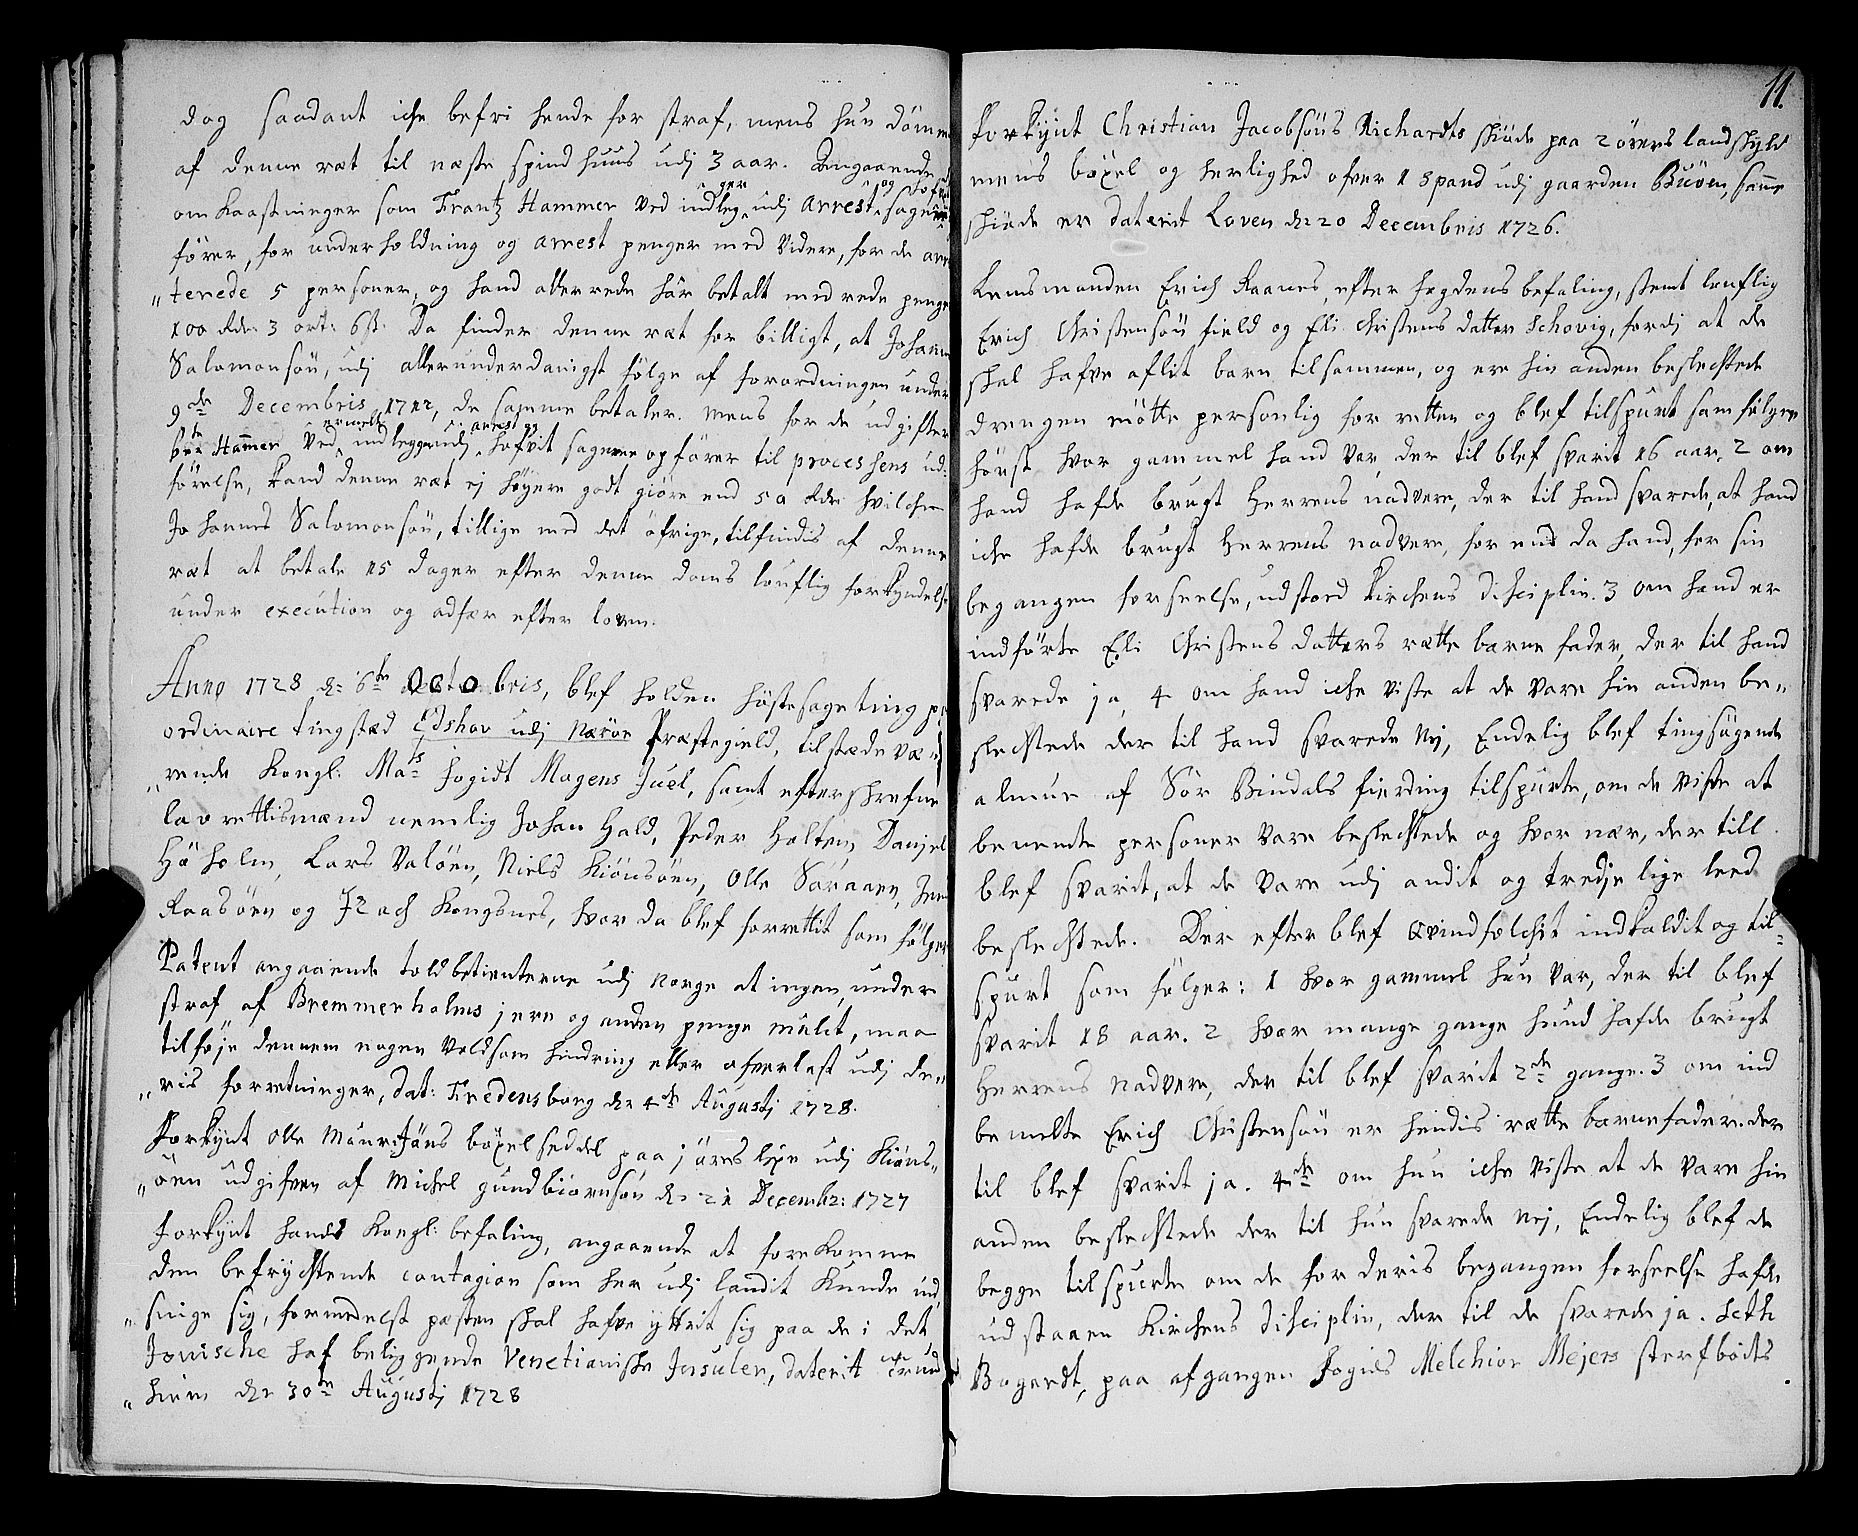 dog saadant iche befri hende for straf, mens hun dömmes
af denne ræt til næste spindhuus udj 3 aar. Angaaende
omkaastninger som Frantz Hammer ved indleg udj arrest, sagens
förer, for underholdning og arrest penger med videre, for de arre
„terede 5 personer, og hand allerrede har betalt med rede penge
100 Rdr 3 ort: 6 s. Da finder denne ræt for billigt, at Johannes
Salomonsön, udj allerunderdanigst fölge af forordningen under
9de Decembris 1712, de samme betaler. mens for de udgifter
Hammer ved indleggende hafvit sagerne opförer til processens ud-
förelse, kand denne ræt ej höyere godt giöre end 50 Rdr hvilchen
Johannes Salomonsön, tillige med det öfrige, tilfindis af denne
ræt at betale 15 dager efter denne doms louflig forkyndelse
under execution og adfær efter loven.
Anno 1728 d: 6te Octobris, blef holden höstesageting paa
ordinaire tingstæd Edshov udj Næröe Præstegield, tilstæde væ-
„rende Kongl: Mats fogidt Mogens Juel, samt efterskrefne
lavrettismænd nemlig Johan Hald, Peder Holten, Danjel
Höholm, Lars Valöen, Niels Kiönsöen, Olle Söraaen, Jens
Raasöen og Izach Kongsnes, hvor da blef forrettit som fölger
Patent angaaende toldbetienterne udj Norge at ingen, under
straf af Bremmerholms jern og anden penge mulct, maa
tilföje dennem nogen voldsom hindring eller ofverlast udj de„
„ris forretninger, dat: Fredensborg d: 4de Augustj 1728.
Forkynt Olle böxelseddel paa j öres leye udj Kiöns„
„öen udgifven af Michel Gundbiörnsön d: 21 Decembr: 1727
Forkynt hands Kongl: befaling, angaaende at forekomme
den befrychtende contagion som her udj landit kunde ind
„snige sig, formedelst pæsten skal hafve yttrit sig paa de i det
Jonische haf beliggende Venetianiske Insuler, daterit Trund
„hiem d: 30te Augustj 1728
11.
Forkynt Christian Jacobsöns Richardts skiöde paa 2 örers landskyld
mens böxel og herlighed ofver 1 spand udj gaarden Buöen, samme
skiöde er daterit Loven d: 20 Decembris 1726.
Lensmanden Erich Raanes, efter fogdens befaling, stemt louflig
Erich Christensön field og Eli Christens datter Schovig, fordj at de
skal hafve aflit barn tilsammen, og ere hin anden beslechtede
drengen mötte personlig for retten og blef tilspurt som fölger
först hvor gammel hand var, der til blef svarit 16 aar, 2 om
hand hafde brugt Herrens nadvere, der til hand svarede, at hand
iche hafde brugt Herrens nadvere, for end da hand, for sin
begangen forseelse, udstoed Kirchens disciplin. 3 om hand er
indförte Eli Christens datters rætte barne fader, der til hand
svarede ja, 4 om hand iche viste at de vare hin anden be„
slechtede der til hand svarede nej, Endelig blef tingsögende
almue af Sör Bindals fierding tilspurte, om de viste at
benente personer vare beslechtede og hvor nær, der till
blef svarit, at de vare udj andit og tredje lige leed
beslechtede. Der efter blef qvindfolchit indkaldit og til-
spurt som fölger: 1 hvor gammel hun var, der til blef
svarit 18 aar. 2 hvor mange gange hund hafde brugt
Herrens nadvere, der til blef svarit 2de gange. 3 om ind
bemelte Erich Christensön er hendis rætte barnefader. der
til blef svarit ja. 4de om hun iche viste at de vare hin
anden beslechtede der til hun svarede nej, Endelig blef de
begge tilspurte om de for deris begangen forseelse hafde
udstaaen Kirchens disciplin, der til de svarede ja. Seth
Bogardt, paa afgangen Fogids Melchior Mejers sterfbods